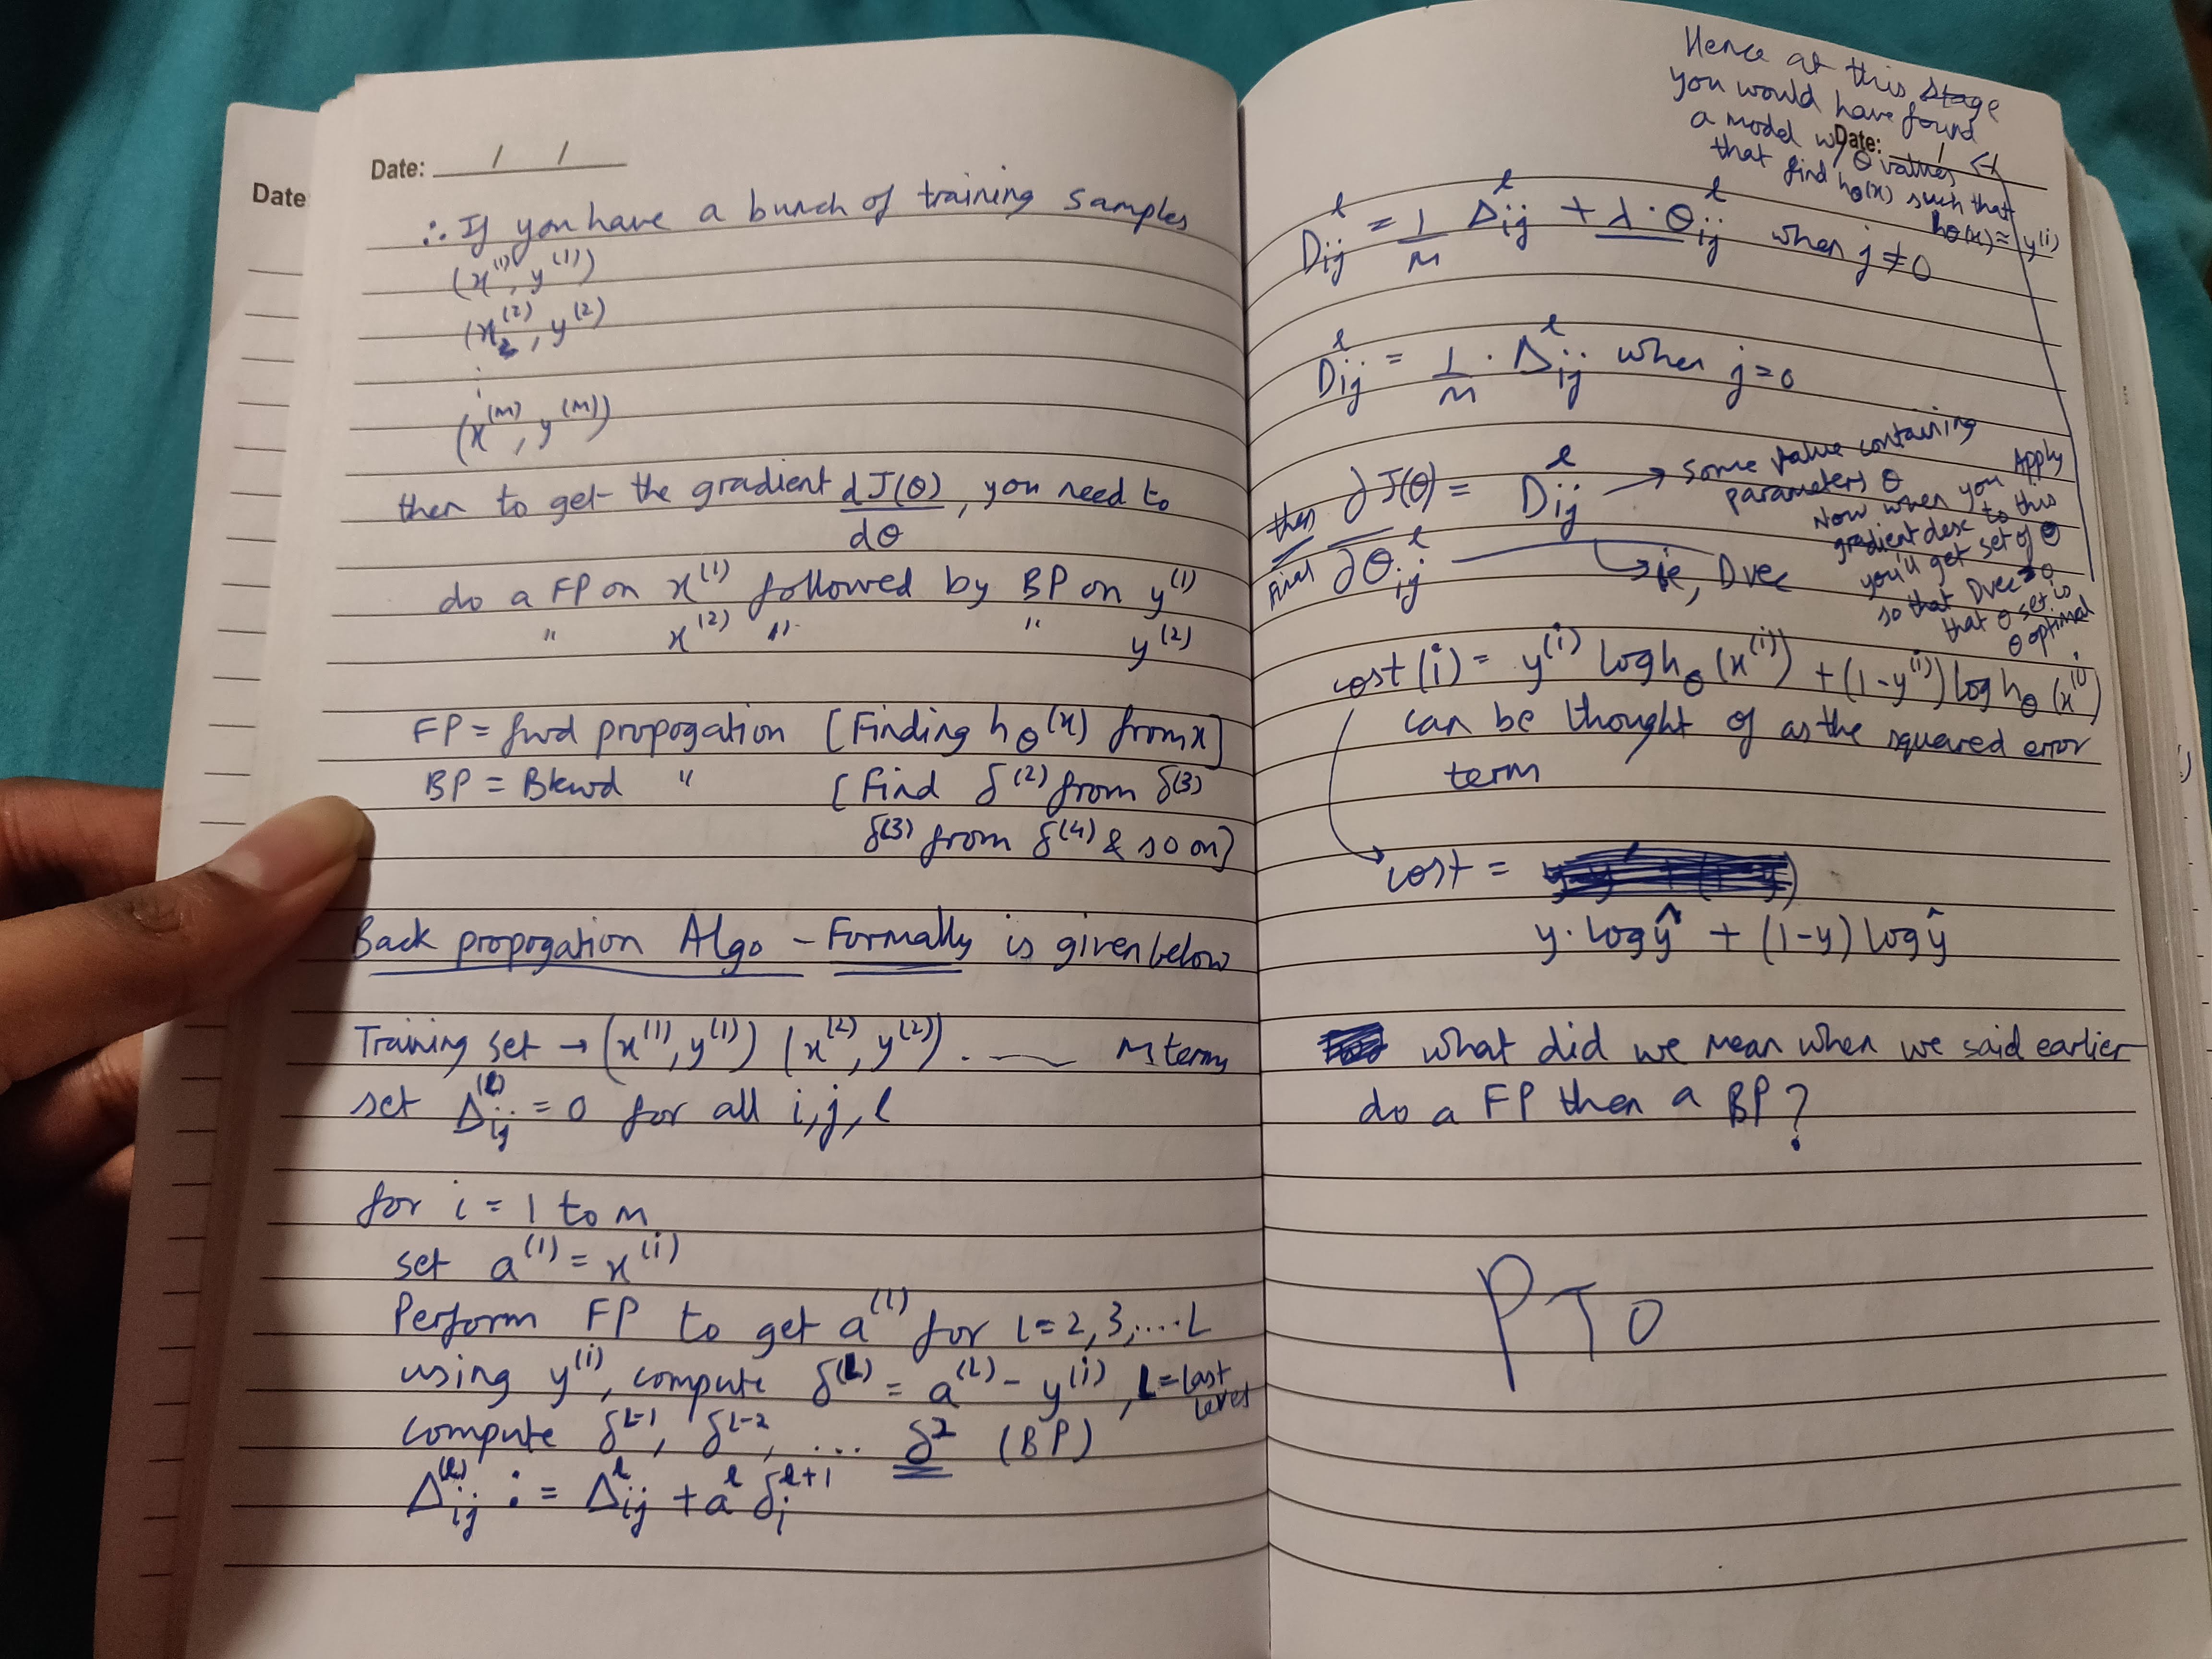 Date
Date: / /
∴ If you have a bunch of training samples
(x^(1), y^(1))
(x^(2), y^(2))
⋮
(x^(M), y^(M))
then to get the gradient dJ(θ)/dθ, you need to
do a FP on x^(1) followed by BP on y^(1)
" x^(2) " " y^(2)
FP = fwd propogation [Finding h_θ(x) from x]
BP = Bkwd " [Find δ^(2) from δ^(3)
δ^(3) from δ^(4) & so on]
Back propogation Algo - Formally is given below
Training set → (x^(1), y^(1)) (x^(2), y^(2)) . ... M terms
set Δ_ij^(l) = 0 for all i, j, l
for i = 1 to M
set a^(1) = x^(i)
Perform FP to get a^(l) for l = 2, 3, .... L
using y^(i), compute δ^(L) = a^(L) - y^(i), L = last level
compute δ^L-1, δ^L-2, ... δ^2 (BP)
Δ_ij^(l) := Δ_ij^l + a^l δ_i^l+1
Hence at this stage
you would have found
a model w/ θ values
that find h_θ(x) such that
h_θ(x) ≈ y^(i)
Date: /
D_ij^l = 1/M Δ_ij^l + λ · θ_ij^l when j ≠ 0
D_ij^l = 1/M · Δ_ij^l when j = 0
then ∂J(θ)/∂θ_ij^l = D_ij^l → some value containing
parameters θ
Final
ie, Dvec
Now when you Apply
gradient desc to this
you'll get set of θ
so that Dvec ≈ 0
that θ set is
θ optimal
cost(i) = y^(i) log h_θ(x^(i)) + (1-y^(i)) log h_θ(x^(i))
can be thought of as the squared error
term
cost =
y · log ŷ + (1-y) log ŷ
what did we mean when we said earlier
do a FP then a BP?
PTO